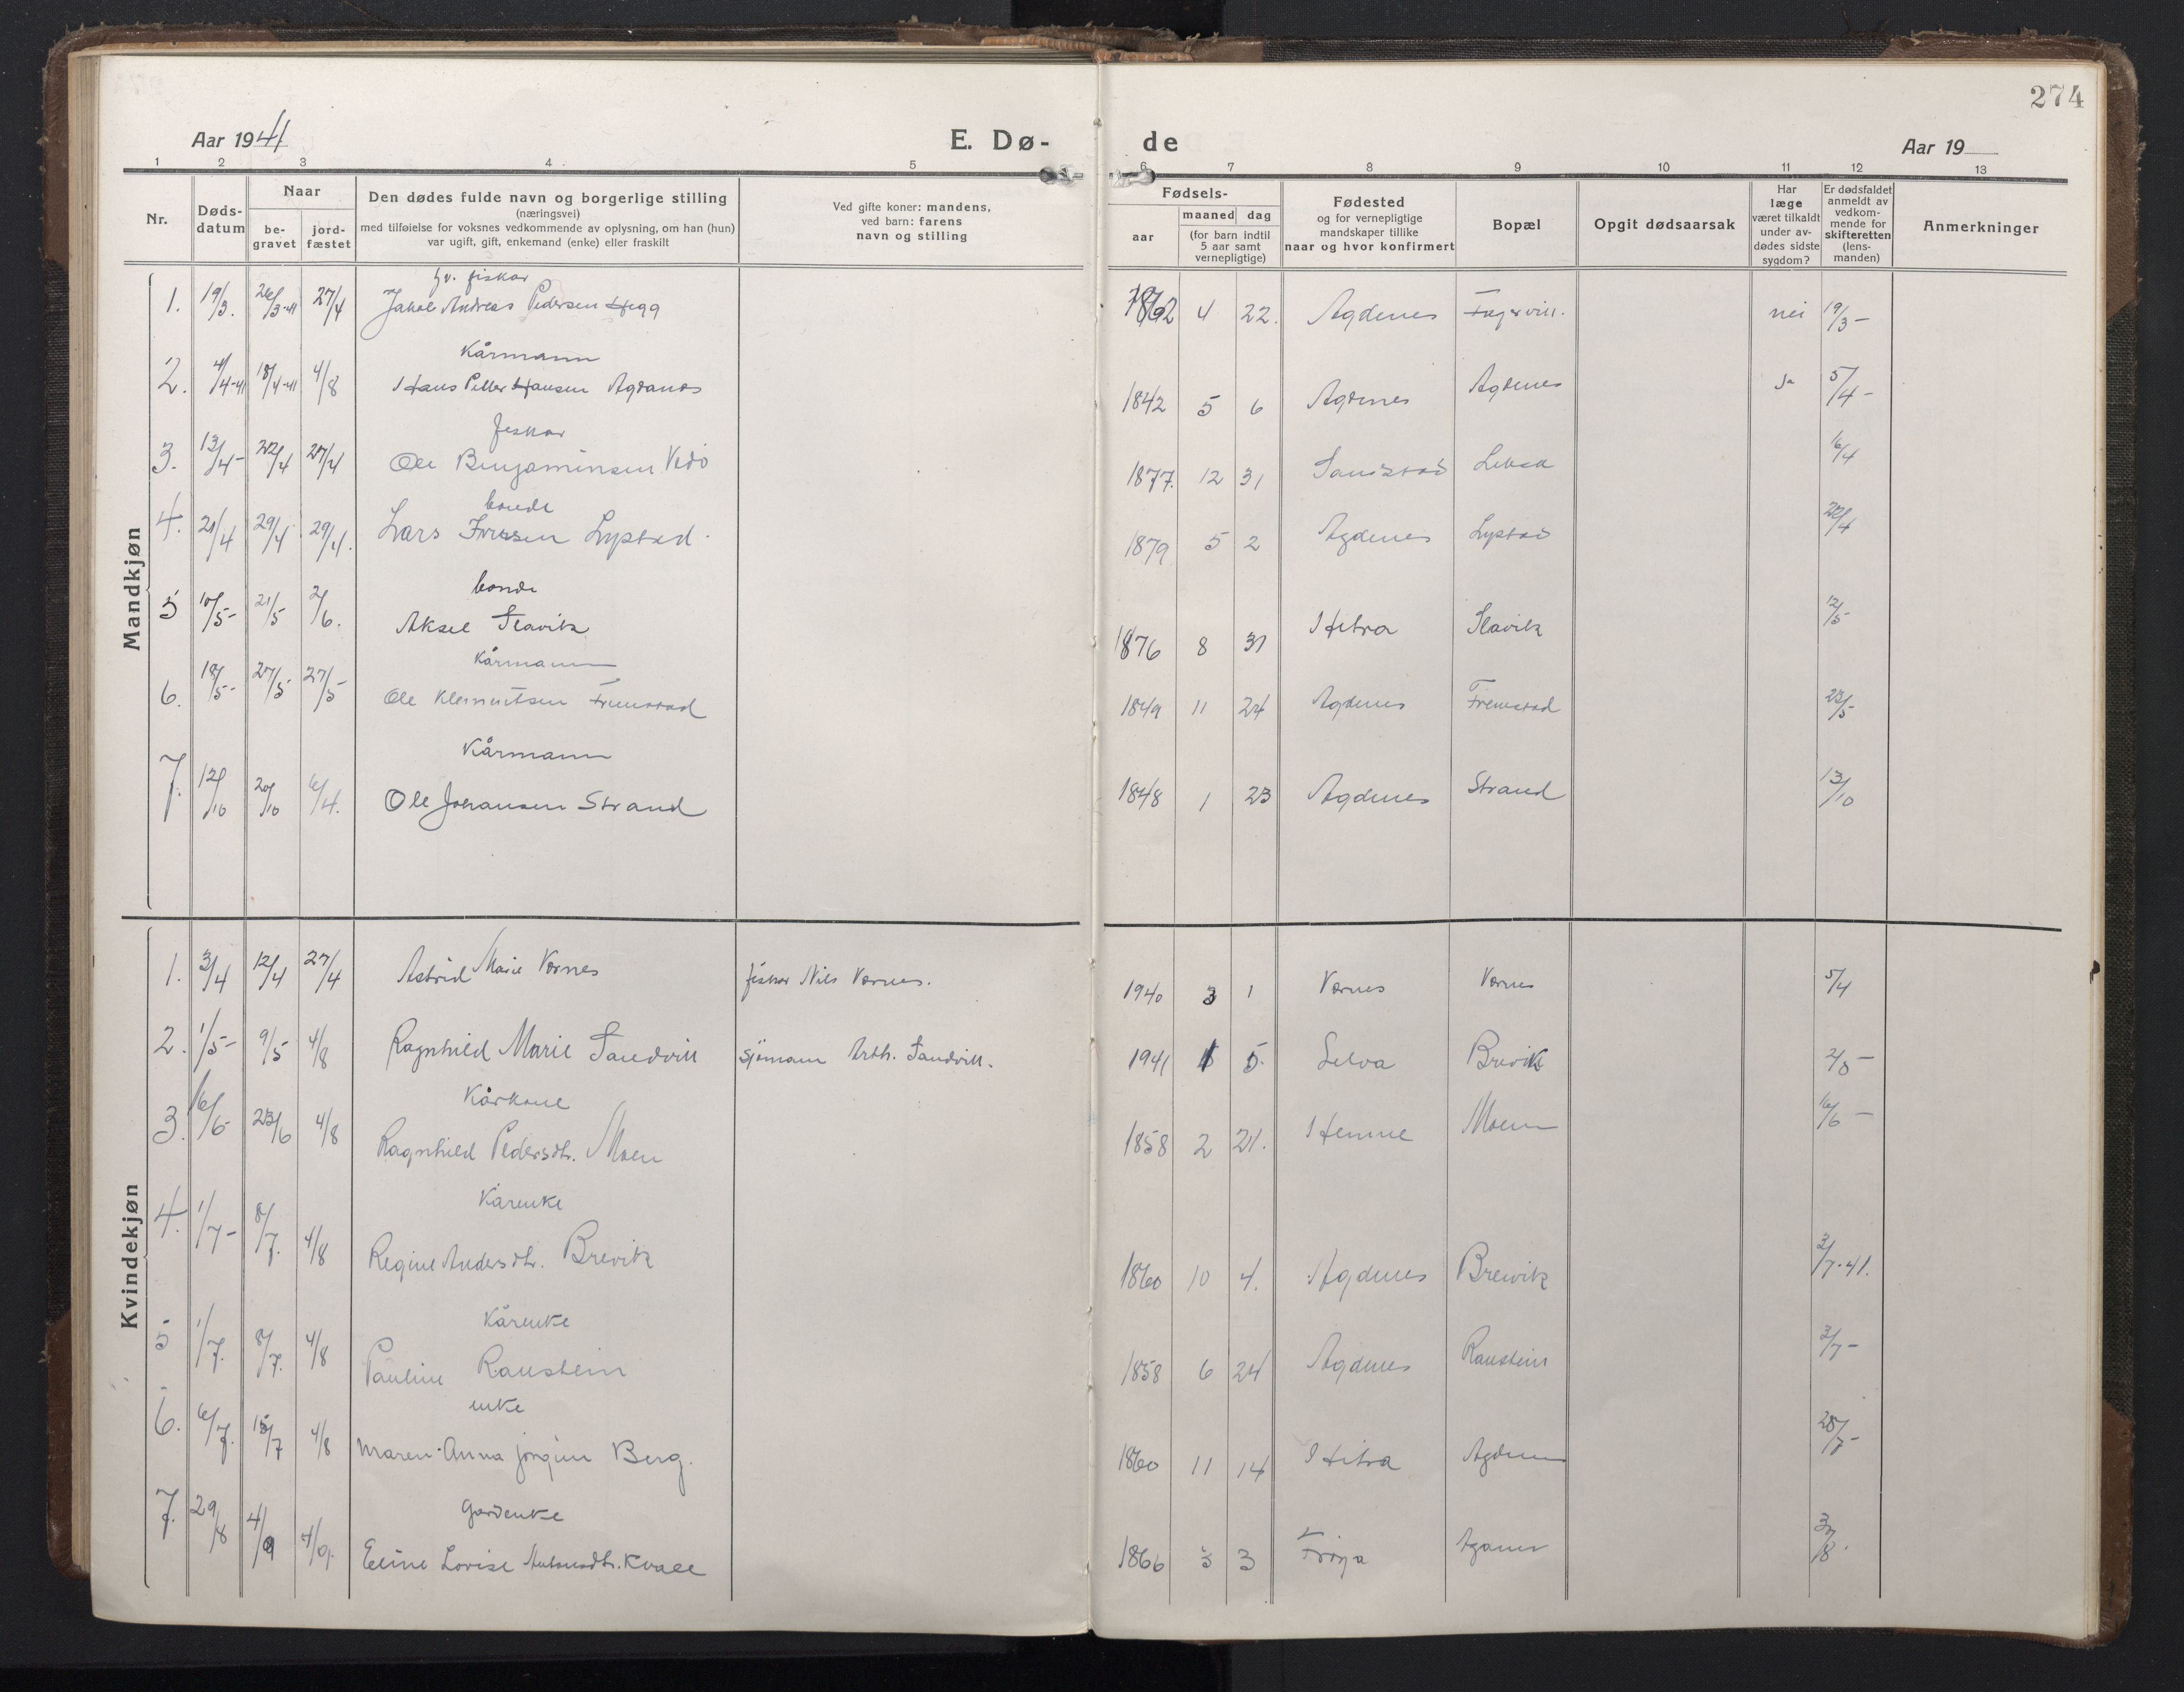 274
Aar 1941 E. Dø- de Aar 19
1 2 3 4 5 6 7 8 9 10 11 12 13
Nr. Døds-datum Naar be-gravet jord-fæstet Den dødes fulde navn og borgerlige stilling (næringsvei) med tilføielse for voksnes vedkommende av oplysning, om han (hun) var ugift, gift, enkemand (enke) eller fraskilt Ved gifte koner: mandens, ved barn: farens navn og stilling Fødsels- aar maaned dag (for barn indtil 5 aar samt vernepligtige) Fødested og for vernepligtige mandskaper tillike naar og hvor konfirmert Bopæl Opgit dødsaarsak Har læge været tilkaldt under av-dødes sidste sygdom? Er dødsfaldet anmeldt av vedkom-mende for skifteretten (lens-manden) Anmerkninger
Mandkjøn
fv. fisker
1. 19/3. 26/3-41 27/4 Jakob Andreas Pedersen Hegg 1862 4 22. Agdenes nei 19/3-
Kårmann
2. 4/4-41 18/4-41 4/8 Hans Petter Hansen Agdenes 1842 5 6 Agdenes Agdenes Ja 5/4-
fisker
3. 13/4- 22/4 27/4 Ole Benjaminsen 1877. 12 31 Sandstad Leksa 16/4
bonde
4. 21/4 29/4 29/4. Lars Iversen Lystad. 1879 5 2 Agdenes Lystad 22/4
bonde
5 10/5- 21/5 2/6. Aksel Slavik 1876 8 31 Hitra Slavik 12/5-
Kårmann
6. 18/5- 27/5 27/5 Ole Klementsen Fremstad 1849 11 24 Agdenes Fremstad 23/5-
Kårmann
7. 12/10 20/10 6/4. Ole Johansen Strand 1848 1 23 Agdenes Strand 13/10
Kvindekjøn
1. 3/4 12/4 27/4 Astrid Marie Vernes fisker Nils Vernes. 1940 3 1 Vernes Vernes 5/4
2. 1/5- 9/5 4/8 Ragnhild Marie Sandvik sjømann Arth. Sandvik. 1941 1 5. Selva Brevik 2/5-
Kårkone
3. 16/6- 23/6 4/8 Ragnhild Pedersdtr. Moen 1858 2 21. Hemne Moen 16/6-
Kårenke
4. 1/7- 8/7. 4/8 Regine Andersdtr. Brevik 1860 10 4. Agdenes Brevik 3/7-41.
Kårenke
5 1/7. 8/7. 4/8 Pauline Ranstein 1858 6 24 Agdenes Ranstein 3/7-
enke
6. 6/7. 15/7 4/8 Maren Anna Jørgine Berg. 1860 11 14 Hitra Agdenes 28/7-
Gardenke
7. 29/8 4/9 4/9. Eline Lovise Antonsdtr. Kvale 1866 3 Frøya Agdenes